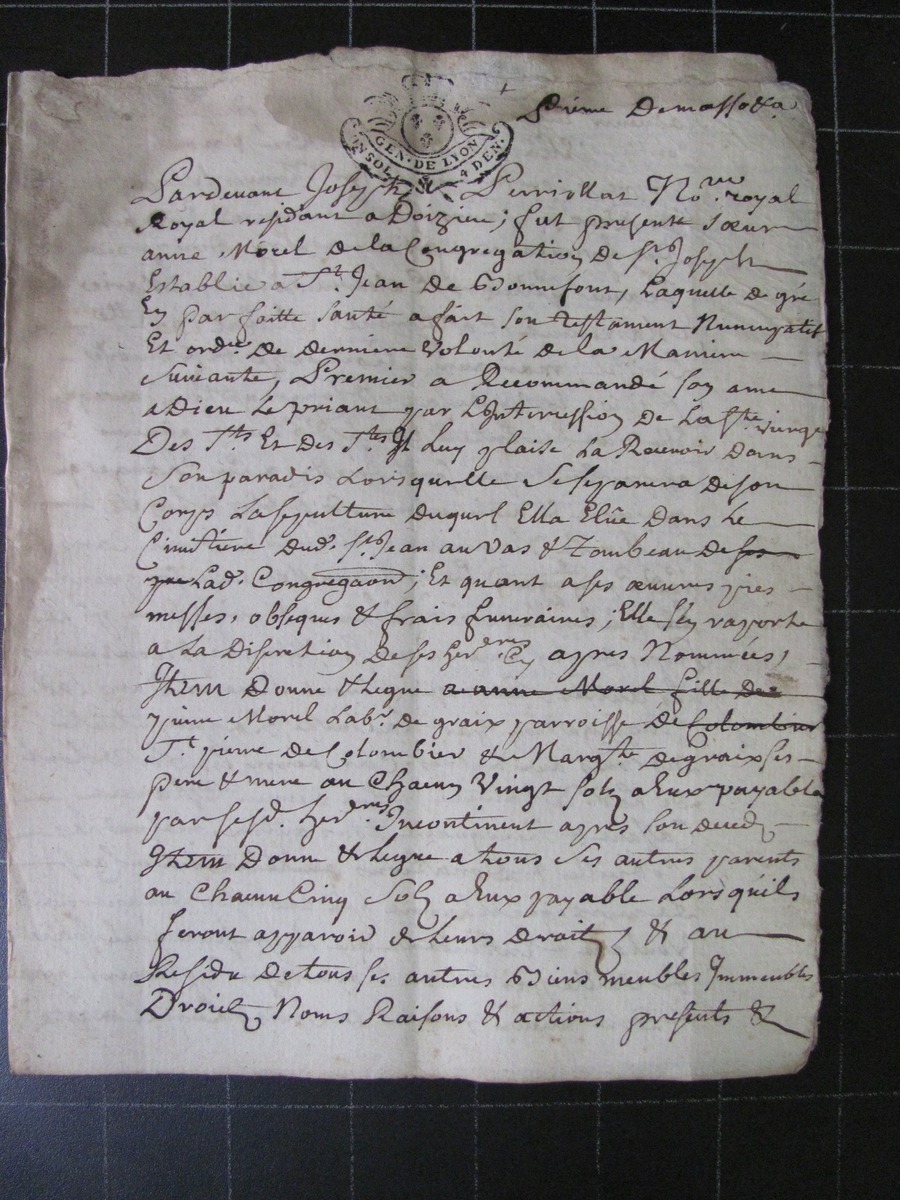 pierre Demassotta
GEN · DE LYON
UN SOL · 4 DEN ·
Pardevant Joseph Perriollat No.re royal
Royal residant a Doizieu; fut presente sœur
anne Morel de la Congregation de St. Joseph
Establie a St. Jean de Bonnefont, Laquelle de gré
En parfaitte santé a fait son testament Nuncupatif
Et ord.re de derniere volonté de la Maniere
Suivante, Premier a Recommandé son ame
a Dieu Le priant par L'Intercession de La Ste. vierge
Des Sts. Et des Stes. Jl Luy plaise La Recevoir Dans
Son paradis Lorsquelle Se separera de son
Corps La sepulture duquel Ella Elûe Dans Le
Cimitiere dud. St. Jean au vas & Tombeau de ses
Lad. Congregaon; Et quant a ses œuvres pies
messes, obseques & frais funeraires; Elle s'en raporte
a La Discretion de ses her.eres Cy apres Nommées,
Jtem Donne & Legue a anne Morel fille de
pierre Morel Lab.r de graix parroisse de Colombier
St. pierre de Colombier & Marg.te de graix ses
pere & mere au Chacun Vingt solz a Eux payable
par sesd. her.eres Incontinent apres son deced
Jtem Donne & Legue a tous ses autres parents
au Chacun Cinq Solz a Eux payable Lors quils
feront apparoir de Leurs droitz & au
Residu de tous ses autres Biens meubles Jmmeubles
Droictz Noms Raisons & actions presents &